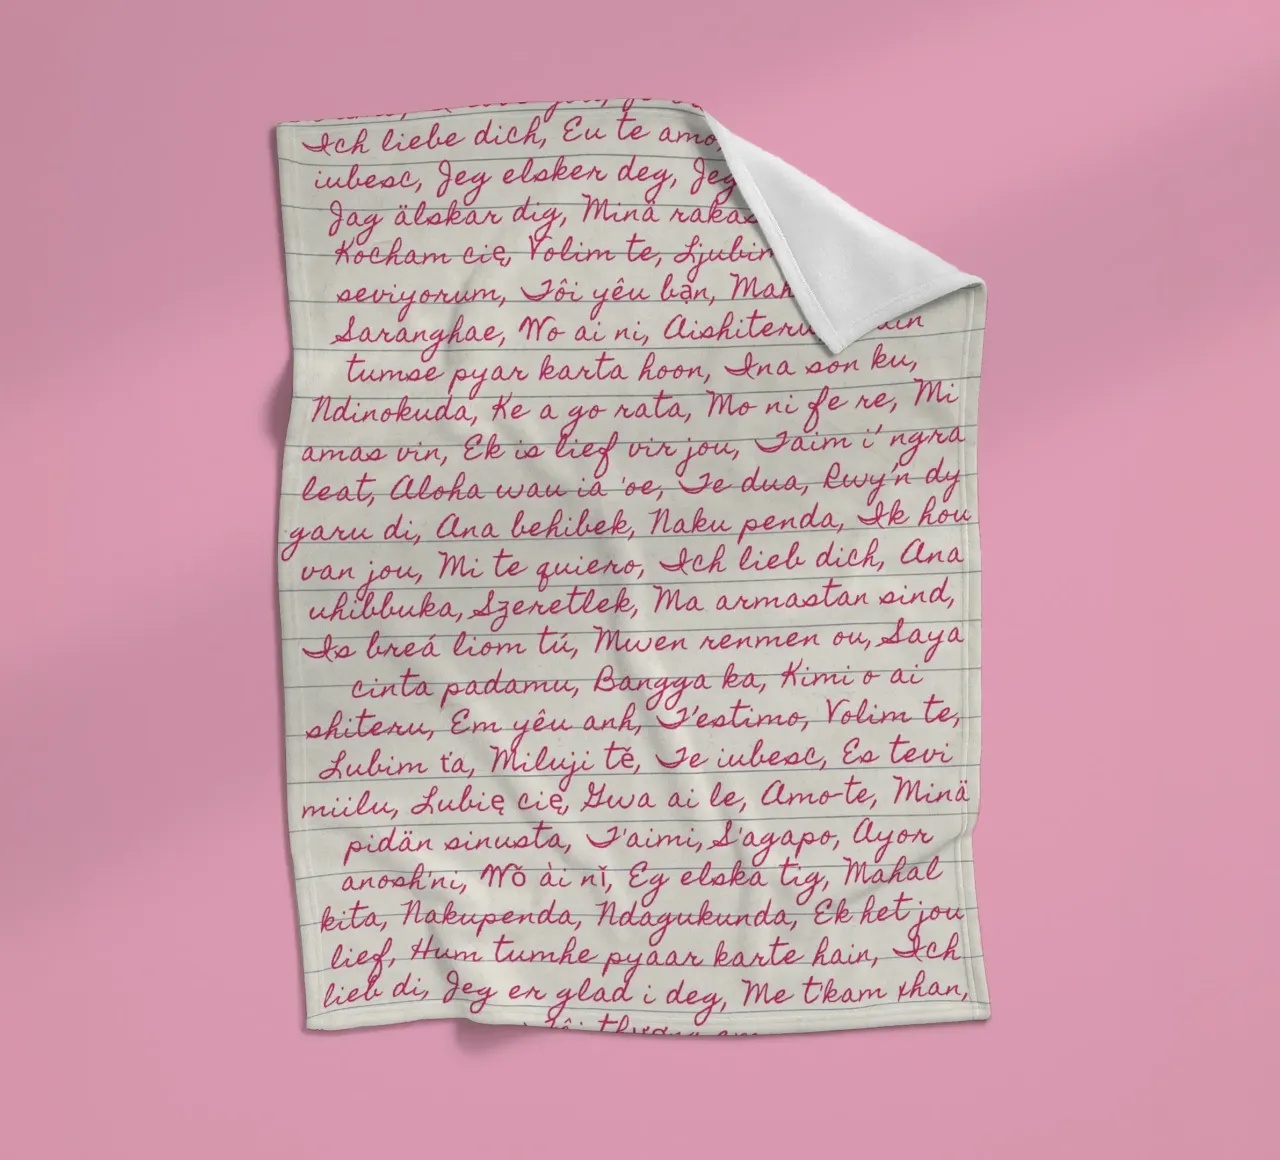 Ich liebe dich, Eu te amo,
iubesc, Jeg elsker deg, Jeg
Jag älskar dig, Minä
Kocham cię, Volim te,
seviyorum, Tôi yêu bạn,
Saranghae, Wo ai ni,
tumse pyar karta hoon, Ina son ku,
Ndinokuda, Ke a go rata, Mo ni fe re, Mi
amas vin, Ek is lief vir jou, Taim i' ngra
leat, Aloha wau ia 'oe, Te dua, Rwy'n dy
garu di, Ana behibek, Naku penda, Ik hou
van jou, Mi te quiero, Ich lieb dich, Ana
uhibbuka, Szeretlek, Ma armastan sind,
Is breá liom tú, Mwen renmen ou, Saya
cinta padamu, Bangga ka, Kimi o ai
shiteru, Em yêu anh, T'estimo, Volim te,
Lubim ťa, Miluji tě, Te iubesc, Es tevi
miilu, Lubię cię, Gwa ai le, Amo-te, Minä
pidän sinusta, T'aimi, S'agapo, Ayor
anosh'ni, Wǒ ài nǐ, Eg elska tig, Mahal
kita, Nakupenda, Ndagukunda, Ek het jou
lief, Hum tumhe pyaar karte hain, Ich
lieb di, Jeg er glad i deg, Me t'kam xhan,